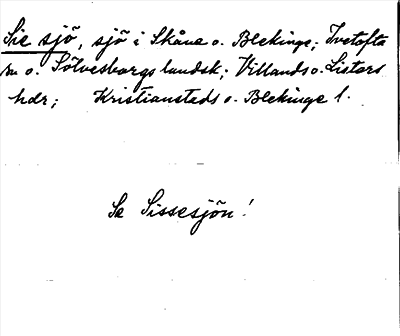 Sie sjö, sjö i Skåne o. Blekinge; Ivetofta
sn o. Sölvesborgs landsk.; Villands o. Listers
hdr; Kristianstads o. Blekinge l.
Se Sissesjön!